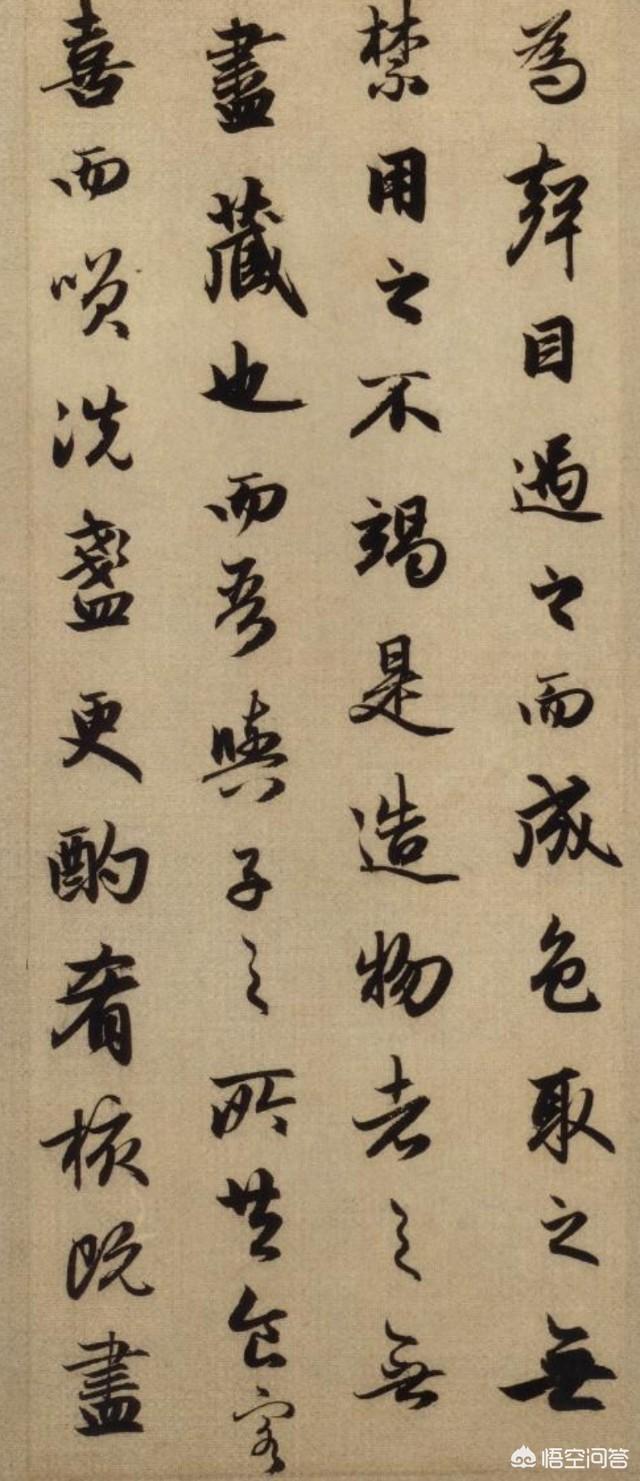 為聲目遇之而成色取之無
禁用之不竭是造物者之無
盡藏也而吾與子之所共食客
喜而咲洗盞更酌肴核既盡
悟空问答